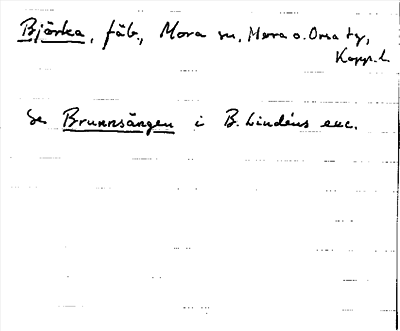 Björka, fäb., Mora sn, Mora o. Orsa tg,
Kopp. l.
Se Brunnsängen i B. Lindéns exc.